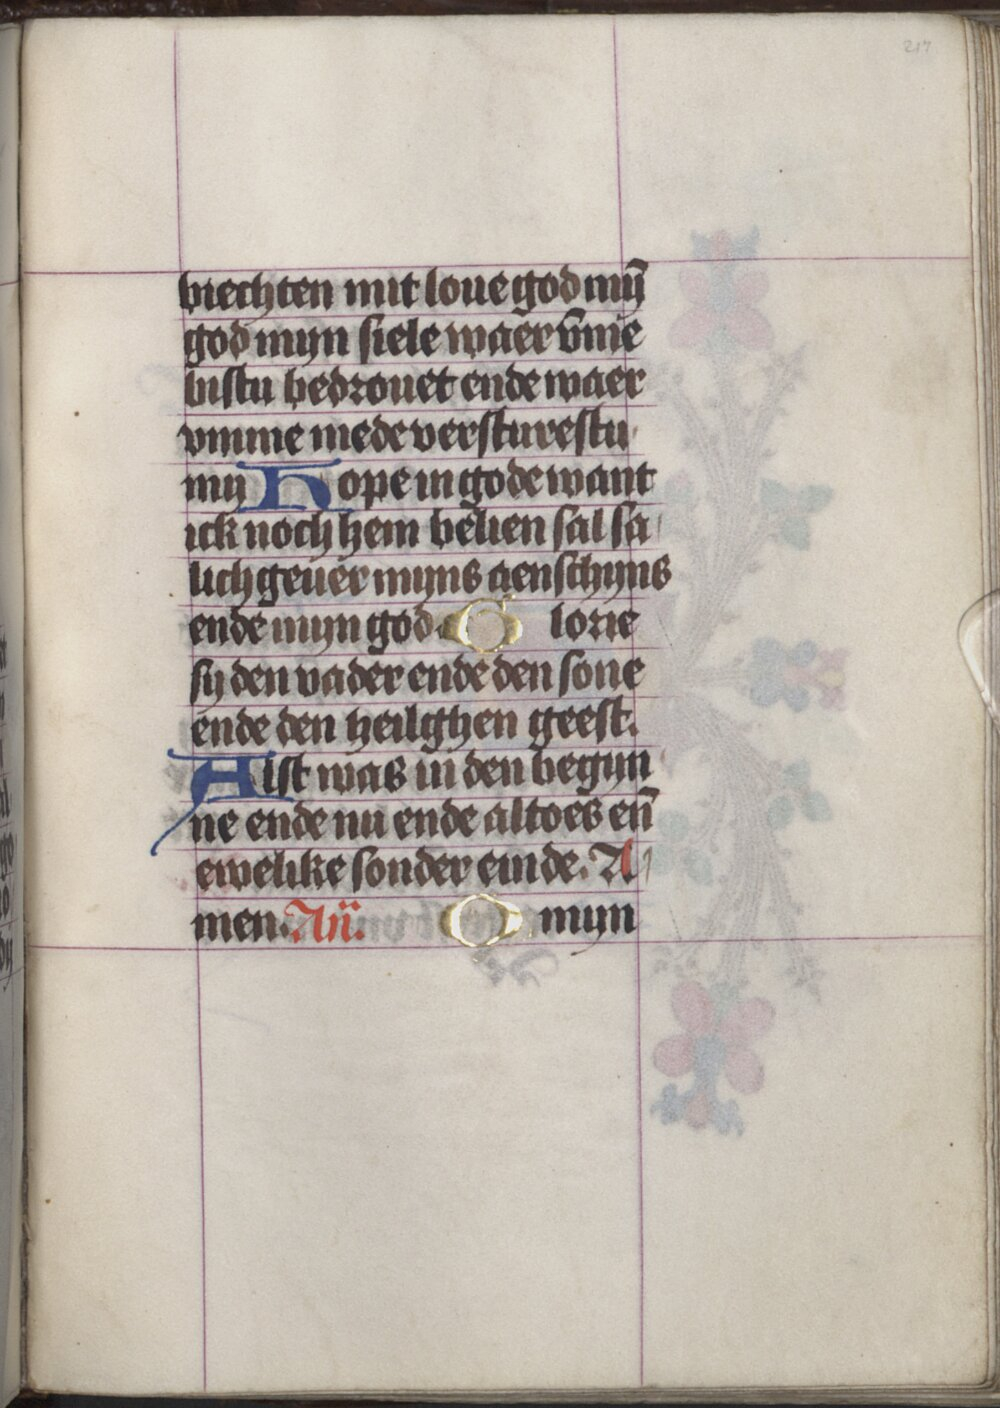 217
biechten mit loue god mȳ
god mijn siele waer v̄me
bistu bedrouet ende waer
vmme mede versturestu
mij Hope in gode want
ick noch hem belien sal sa
lich geuer mijns aenschijns
ende mijn god. Glorie
sij den vader ende den sone
ende den heilghen geest.
Alst was in den begijn
ne ende nu ende altoes en̄
ewelike sonder einde. A
men. An̄. O mijn